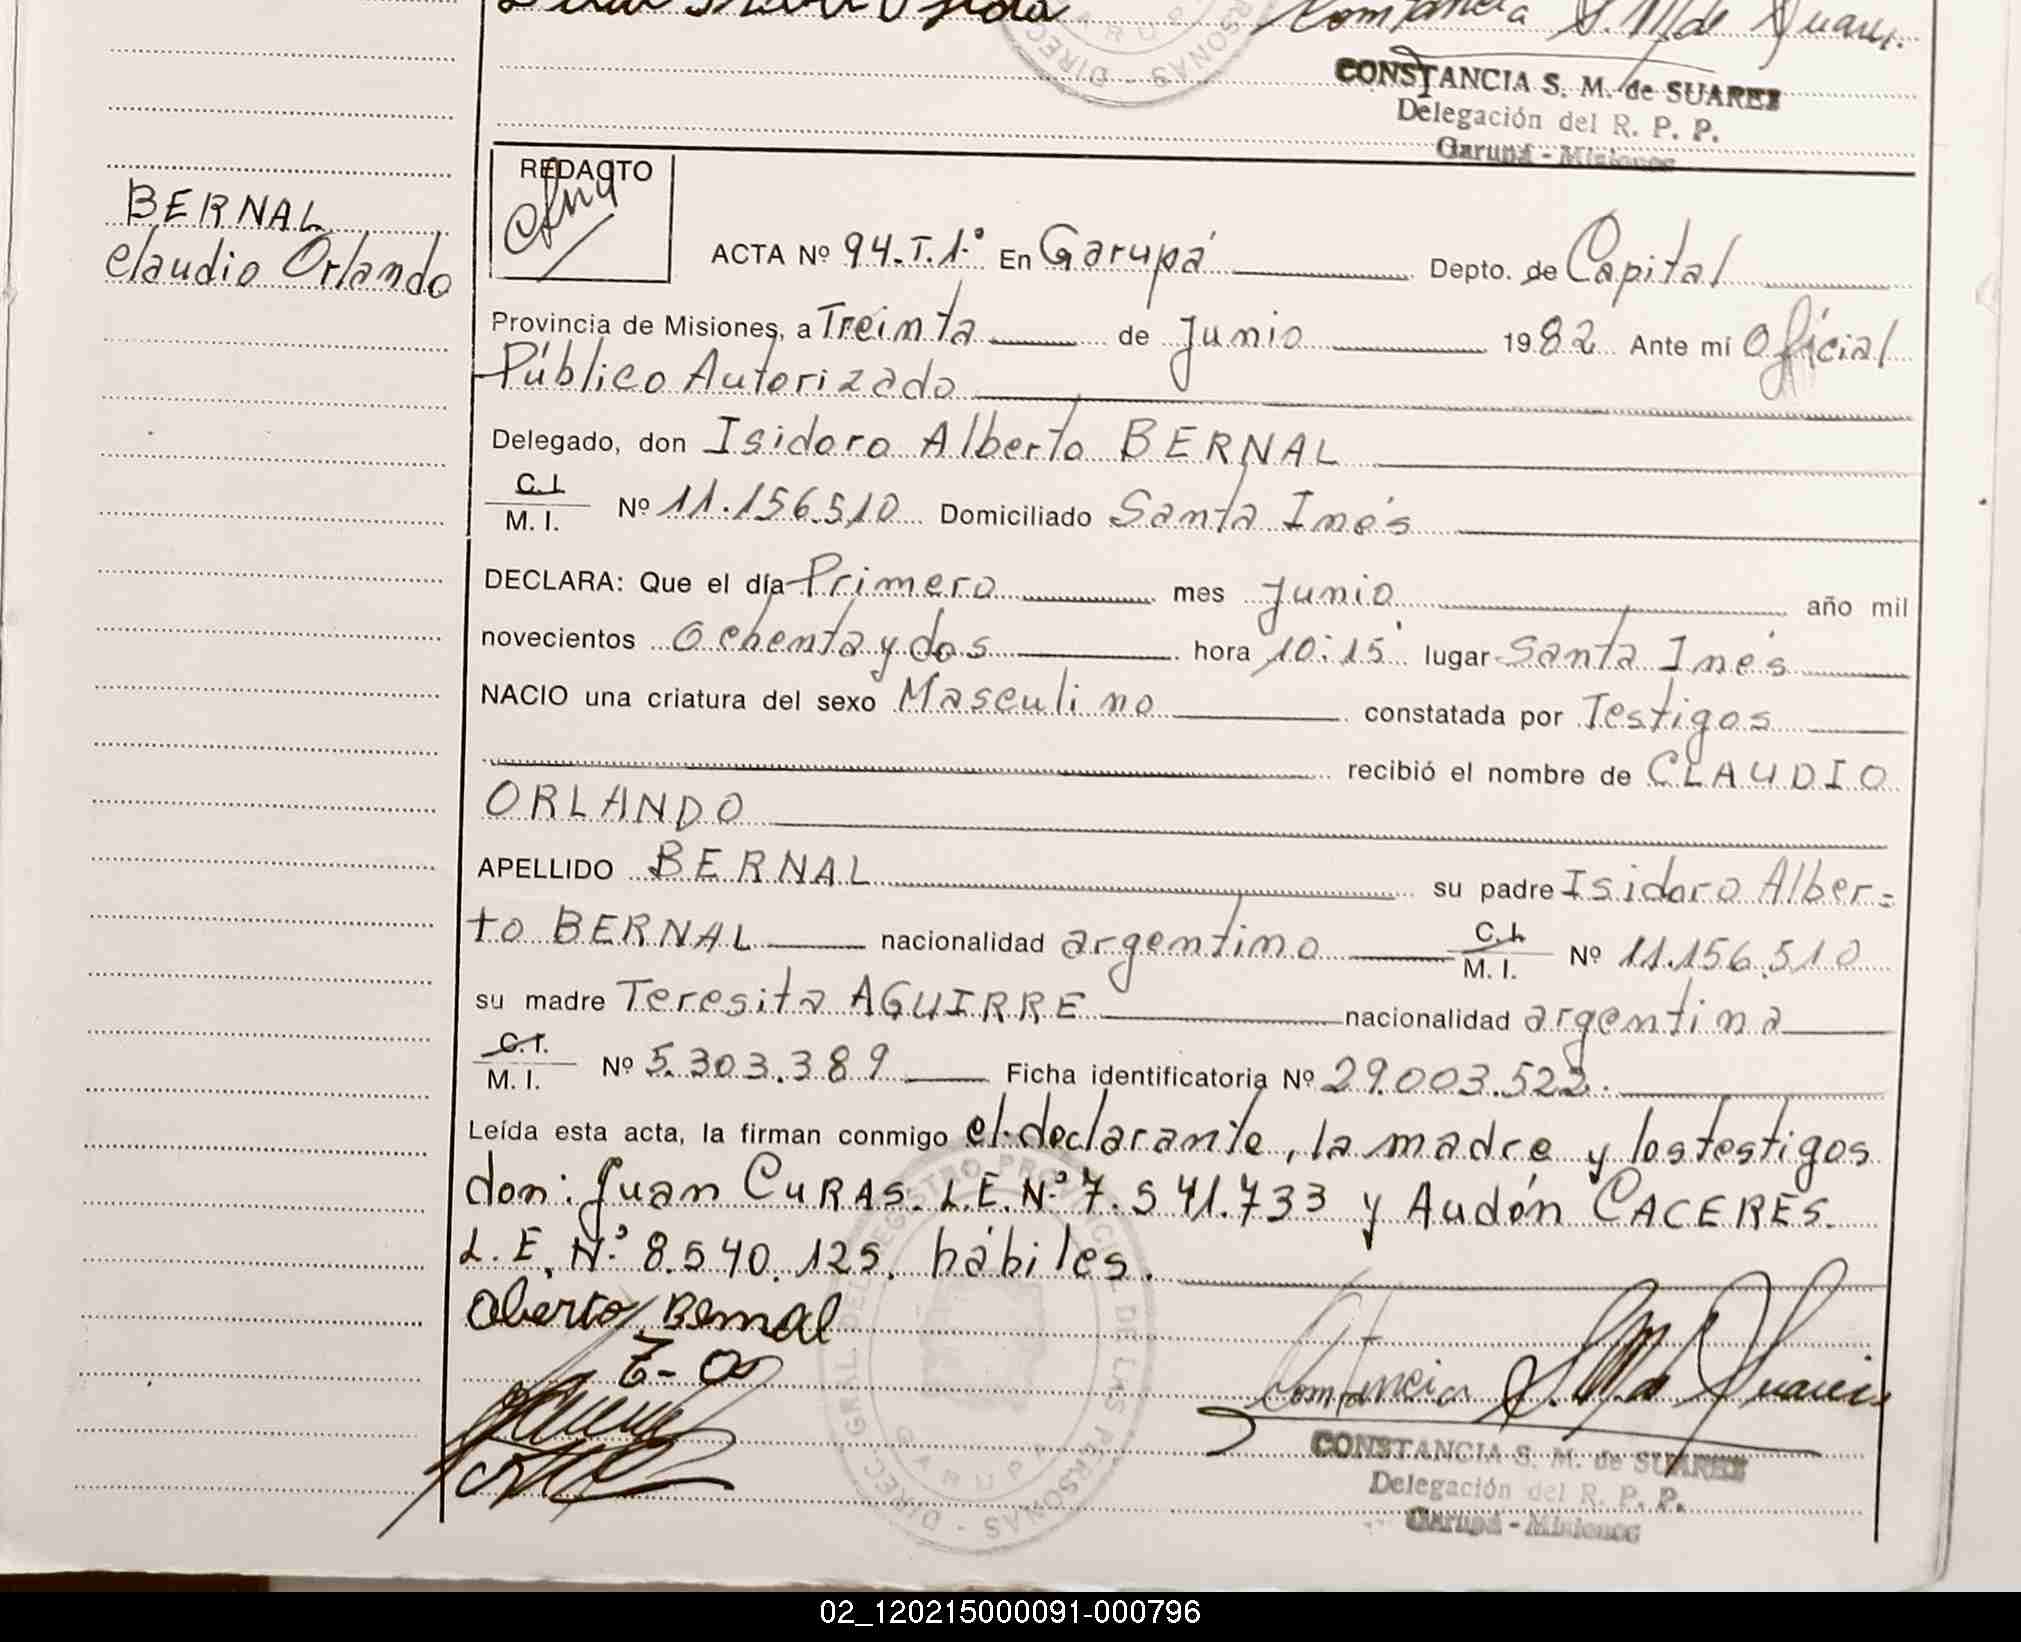 CONSTANCIA S. M. de SUAREZ
Delegación del R. P. P.
Garupá - Misiones
REDACTO
BERNAL
Claudio Orlando
ACTA Nº 94.T.1º En Garupá Depto. de Capital
Provincia de Misiones, a Treinta de Junio 1982 Ante mi Oficial
Público Autorizado
Delegado, don Isidoro Alberto BERNAL
C.I.
M. I. Nº 11.156.510 Domiciliado Santa Inés
DECLARA: Que el día Primero mes Junio año mil
novecientos Ochenta y dos hora 10:15' lugar Santa Inés
NACIO una criatura del sexo Masculino constatada por Testigos
recibió el nombre de CLAUDIO
ORLANDO
APELLIDO BERNAL su padre Isidoro Alber=
to BERNAL nacionalidad argentino C.I. M. I. Nº 11.156.510
su madre Teresita AGUIRRE nacionalidad argentina
C.I.
M. I. Nº 5.303.389 Ficha identificatoria Nº 29.003.522.
Leída esta acta, la firman conmigo el declarante, la madre y los testigos
don: Juan CURAS. L.E. Nº 7.541.733 y Audón CACERES.
L.E. Nº 8.540.125. hábiles.
Alberto Bernal
Constancia S. M. de Suarez
CONSTANCIA S. M. de SUAREZ
Delegación del R. P. P.
Garupá - Misiones
DIREC. GRAL. DEL REGISTRO PROVINCIAL DE LAS PERSONAS -
GARUPA
02_120215000091-000796